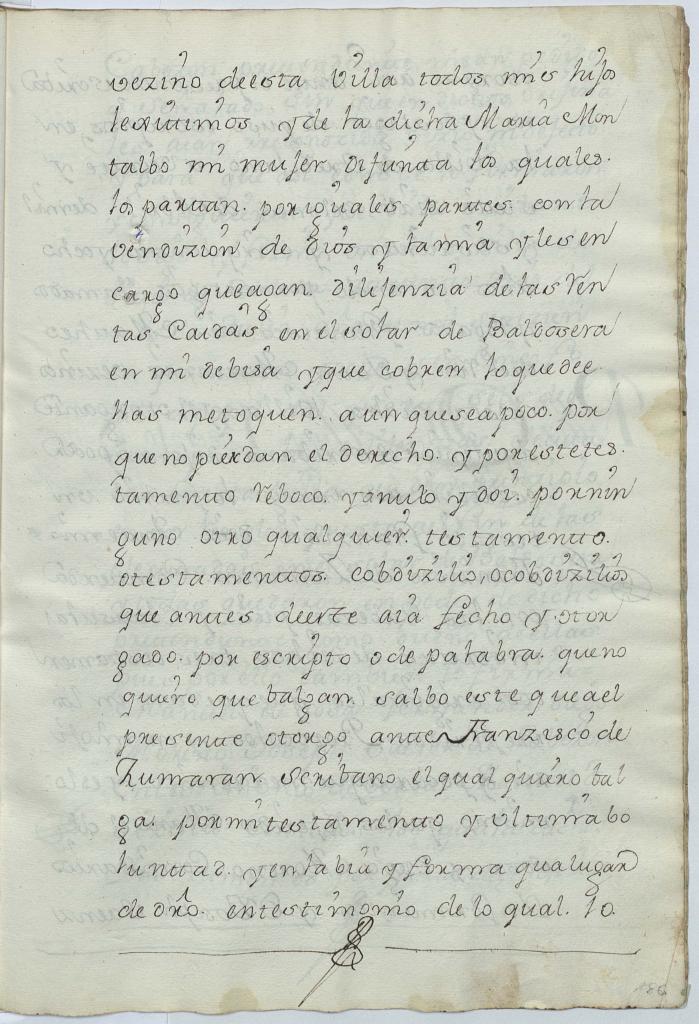 vezino deesta Villa todos mis hijos
lexitimos y de la dicha Maria Mon
talbo mi mujer difunta los quales.
los partan. por iguales partes con la
vendizion de dios y la mia y les en
cargo queagan. dilijenzia de las Ren
tas Caidas en el solar de Baldosera
en mi debisa y que cobren lo quede e
llas me toquen. a un quesea poco. por
que no pierdan el derecho. y por este tes.
tamentto Reboco. y anulo y doi. por nin
guno otro qualquier. testamentto.
o testamenttos. cobdizilio, o cobdizilios
que anttes deeste aia fecho y otor
gado. por escripto o de palabra. que no
quiero que balgan. salbo este que a el
presentte otorgo antte Franzisco de
Zumaran. Scribano el qual quiero bal
ga. por mi testamentto y ultima bo
lunttad. y en la bia y forma qua lugar
de dro. en testimonio de lo qual. lo
186